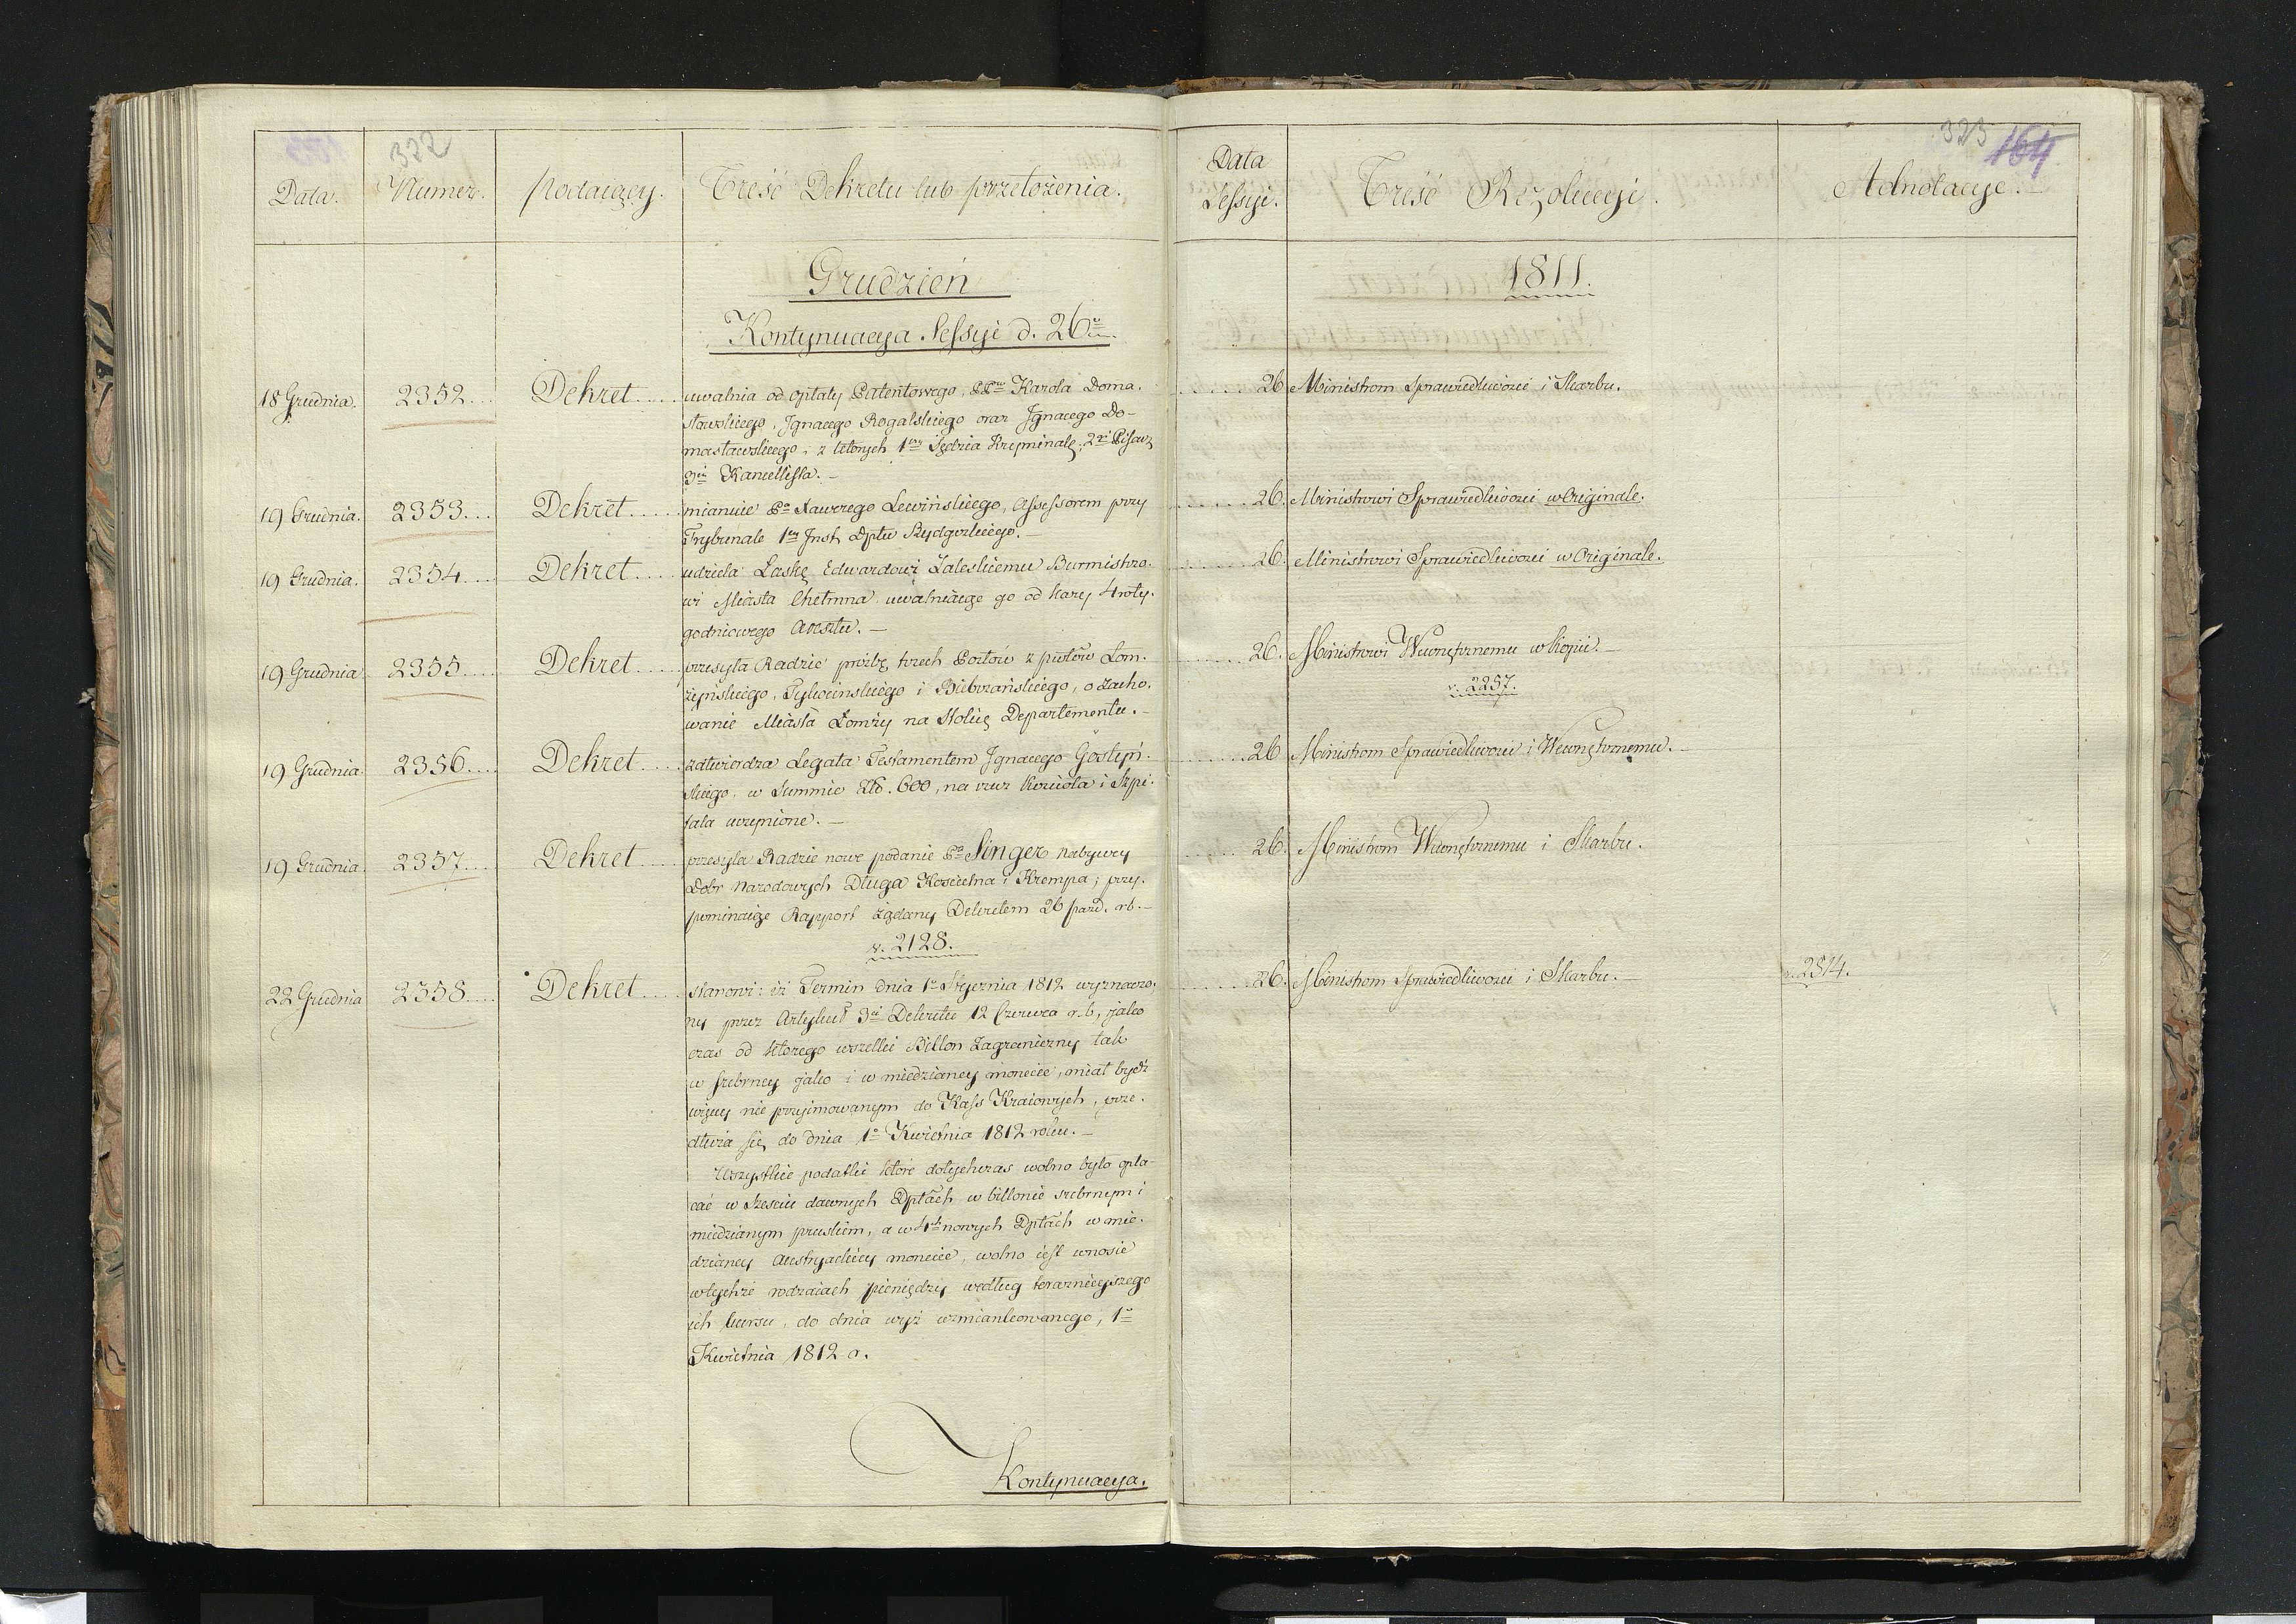 322
Data.
Numer.
Podaiący.
Treść Dekretu lub przełożenia.
Grudzień
Kontynuacya Sessyi d. 26º
18 Grudnia. 2352... Dekret..... uwalnia od opłaty Patentowego, PPów Karola Doma-
sławskiego, Ignacego Rogalskiego oraz Ignacego Do-
masławskiego, z których 1szy Sędzia Kryminalę; 2gi Pisarz
3ci Kancellista. —
19 Grudnia. 2353... Dekret..... mianuie Pa Xawerego Lewińskiego, Assessorem przy
Trybunale 1ey Inst. Dptu Bydgoskiego. —
19 Grudnia. 2354.... Dekret..... udziela Łaskę Edwardowi Zaleskiemu Burmistrzo-
wi Miasta Chełmna uwalniaiąc go od kary 4roty-
godniowego Aresztu. —
19 Grudnia 2355..... Dekret..... przesyła Radzie prośbę trzech Posłów z pttów Łom-
żyńskiego, Tykocińskiego i Biebrzańskiego, o zacho-
wanie Miasta Łomży na Stolicę Departamentu. —
19 Grudnia. 2356.... Dekret..... zatwierdza Legata Testamentem Ignacego Gostyń-
skiego, w Summie Złp. 600, na rzecz Kościoła i Szpi-
tala uczynione. —
19 Grudnia. 2357.... Dekret..... przesyła Radzie nowe podanie Pa Singer Nabywcy
Dobr Narodowych Długa Kościelna i Krempa; przy-
pominaiąc Rapport żądany Dekretem 26 paźd. rb. —
v. 2128.
22 Grudnia 2358.... Dekret..... stanowi: iż Termin dnia 1º Stycznia 1812 wyznaczo-
ny przez Artykuł 3ci Dekretu 12 Czerwca r.b, jako
czas od którego wszelki Billon Zagraniczny tak
w srebrney jako i w miedzianey monecie, miał bydź
więcey nie przyimowanym do Kass Kraiowych, prze-
dłuża się do dnia 1º Kwietnia 1812 roku. —
Wszystkie podatki które dotychczas wolno było opła-
cać w sześciu dawnych Dptach w billonie srebrnym i
miedzianym pruskim, a w 4ch nowych Dptach w mie-
dzianey Austryackiey monecie, wolno iest wnosić
w tychże rodzaiach pieniędzy według teraznieyszego
ich kursu, do dnia wyż wzmiankowanego, 1º
Kwietnia 1812 r.
Kontynuacya.
323
164
Data
Sessyi.
Treść Rezolucyi.
Adnotacye.
1811.
......26 Ministrom Sprawiedliwości i Skarbu.
......26. Ministrowi Sprawiedliwości w Originale.
......26. Ministrowi Sprawiedliwości w Originale.
......26. Ministrowi Wewnętrznemu w kopii. —
v. 2257.
......26 Ministrom Sprawiedliwości i Wewnętrznemu. —
......26. Ministrom Wewnętrznemu i Skarbu.
......26. Ministrom Sprawiedliwości i Skarbu. — v. 2314.